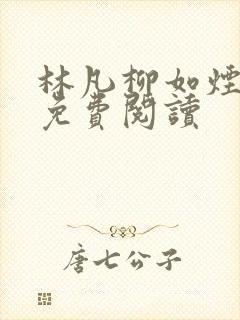 林凡柳如煙
免費閱讀
唐七公子